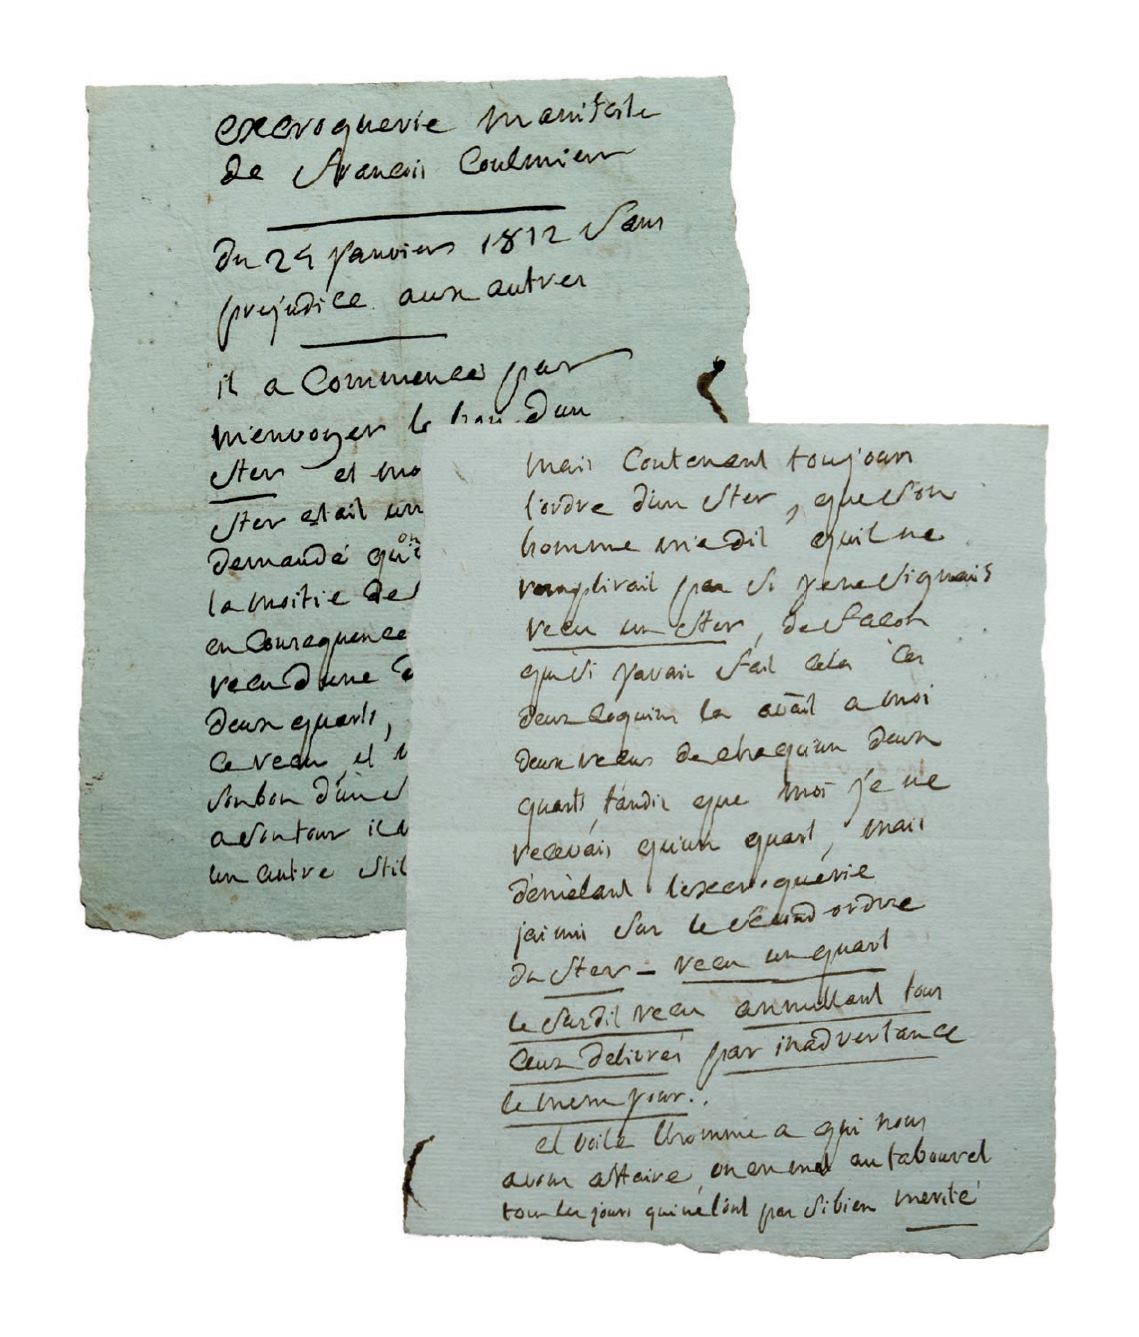 excroquerie manifeste
de francois Coulmiers
du 24 janviers 1812 sans
prejudice aux autres
il a Commencé par
m'envoyer le bon d'un
ster et mo
ster etait un
demandé qu'
la moitie de
en Consequence
recu d'une
deux quarts,
ce recu et
son bon d'un
a son tour il
un autre stil
mais Contenant toujours
l'ordre d'un ster, que son
homme m'a dit quil ne
remplirait pas si je ne signais
recu un ster, de facon
que si javais fait cela ces
deux Coquins la avait a moi
deux recus de chaqu'un deux
quarts tandis que moi je ne
recevais qu'un quart, mais
demelant lexcroquérie
jai mis sur le second ordre
du ster – recu un quart
le susdit recu annullant tous
Ceux delivrés par inadvertance
le meme jour..
et voila lhomme a qui nous
avons affaire, on en met au tabouret
tous les jours qui ne l'ont pas si bien merité